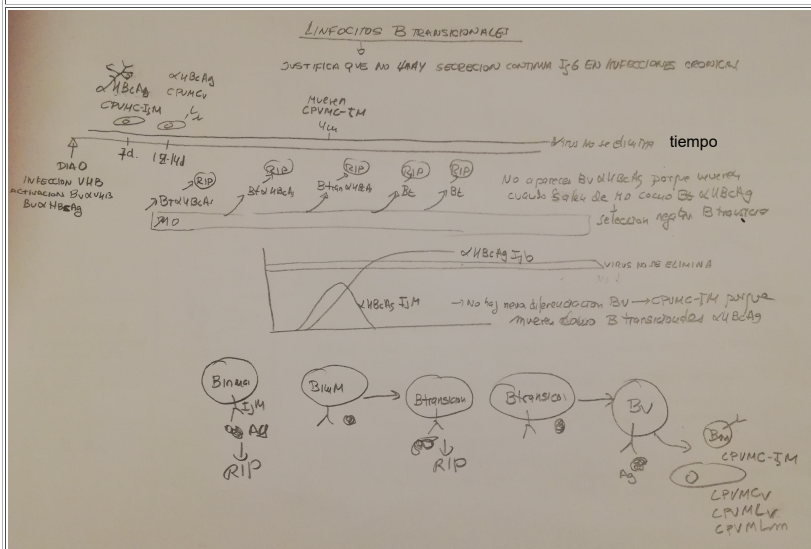 LINFOCITOS B TRANSICIONALES
JUSTIFICA QUE NO HAAY SECRECION CONTINUA IgG EN INFECCIONES CRONICAS
αHBcAg
CPVMC-IgM
αHBcAg
CPVMCv
MUEREN
CPVMC-IM
4m
7d.
VIRUS NO SE ELIMINA
tiempo
DIA 0
INFECCION VHB
ACTIVACION BVαVHB
BVαHBcAg
RIP
RIP
RIP
RIP
RIP
BtαHBcAg
BtαHBcAg
BtranαHBcA
Bt
Bt
MO
No aparecen BVαHBcAg porque mueren
cuando salen de MO como Bt αHBcAg
selección negativa B transicio
αHBcAg IgG
VIRUS NO SE ELIMINA
αHBcAg IgM
→ No hay nueva diferenciacion BV → CPVMC-IM porque
mueren como B transicionales αHBcAg
Binma
IgM
Ag
RIP
BinM
Btransicion
RIP
Btransicoi
BV
Ag
Bm
CPVMC-IgM
CPVMCv
CPVMLv
CPVMLm